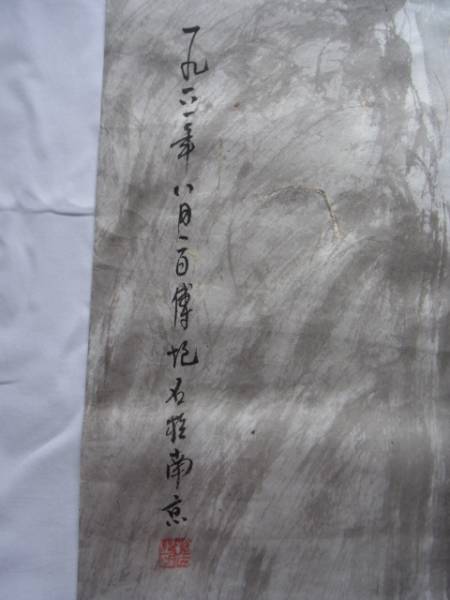 一九六一年八月一日傅抱石於南京